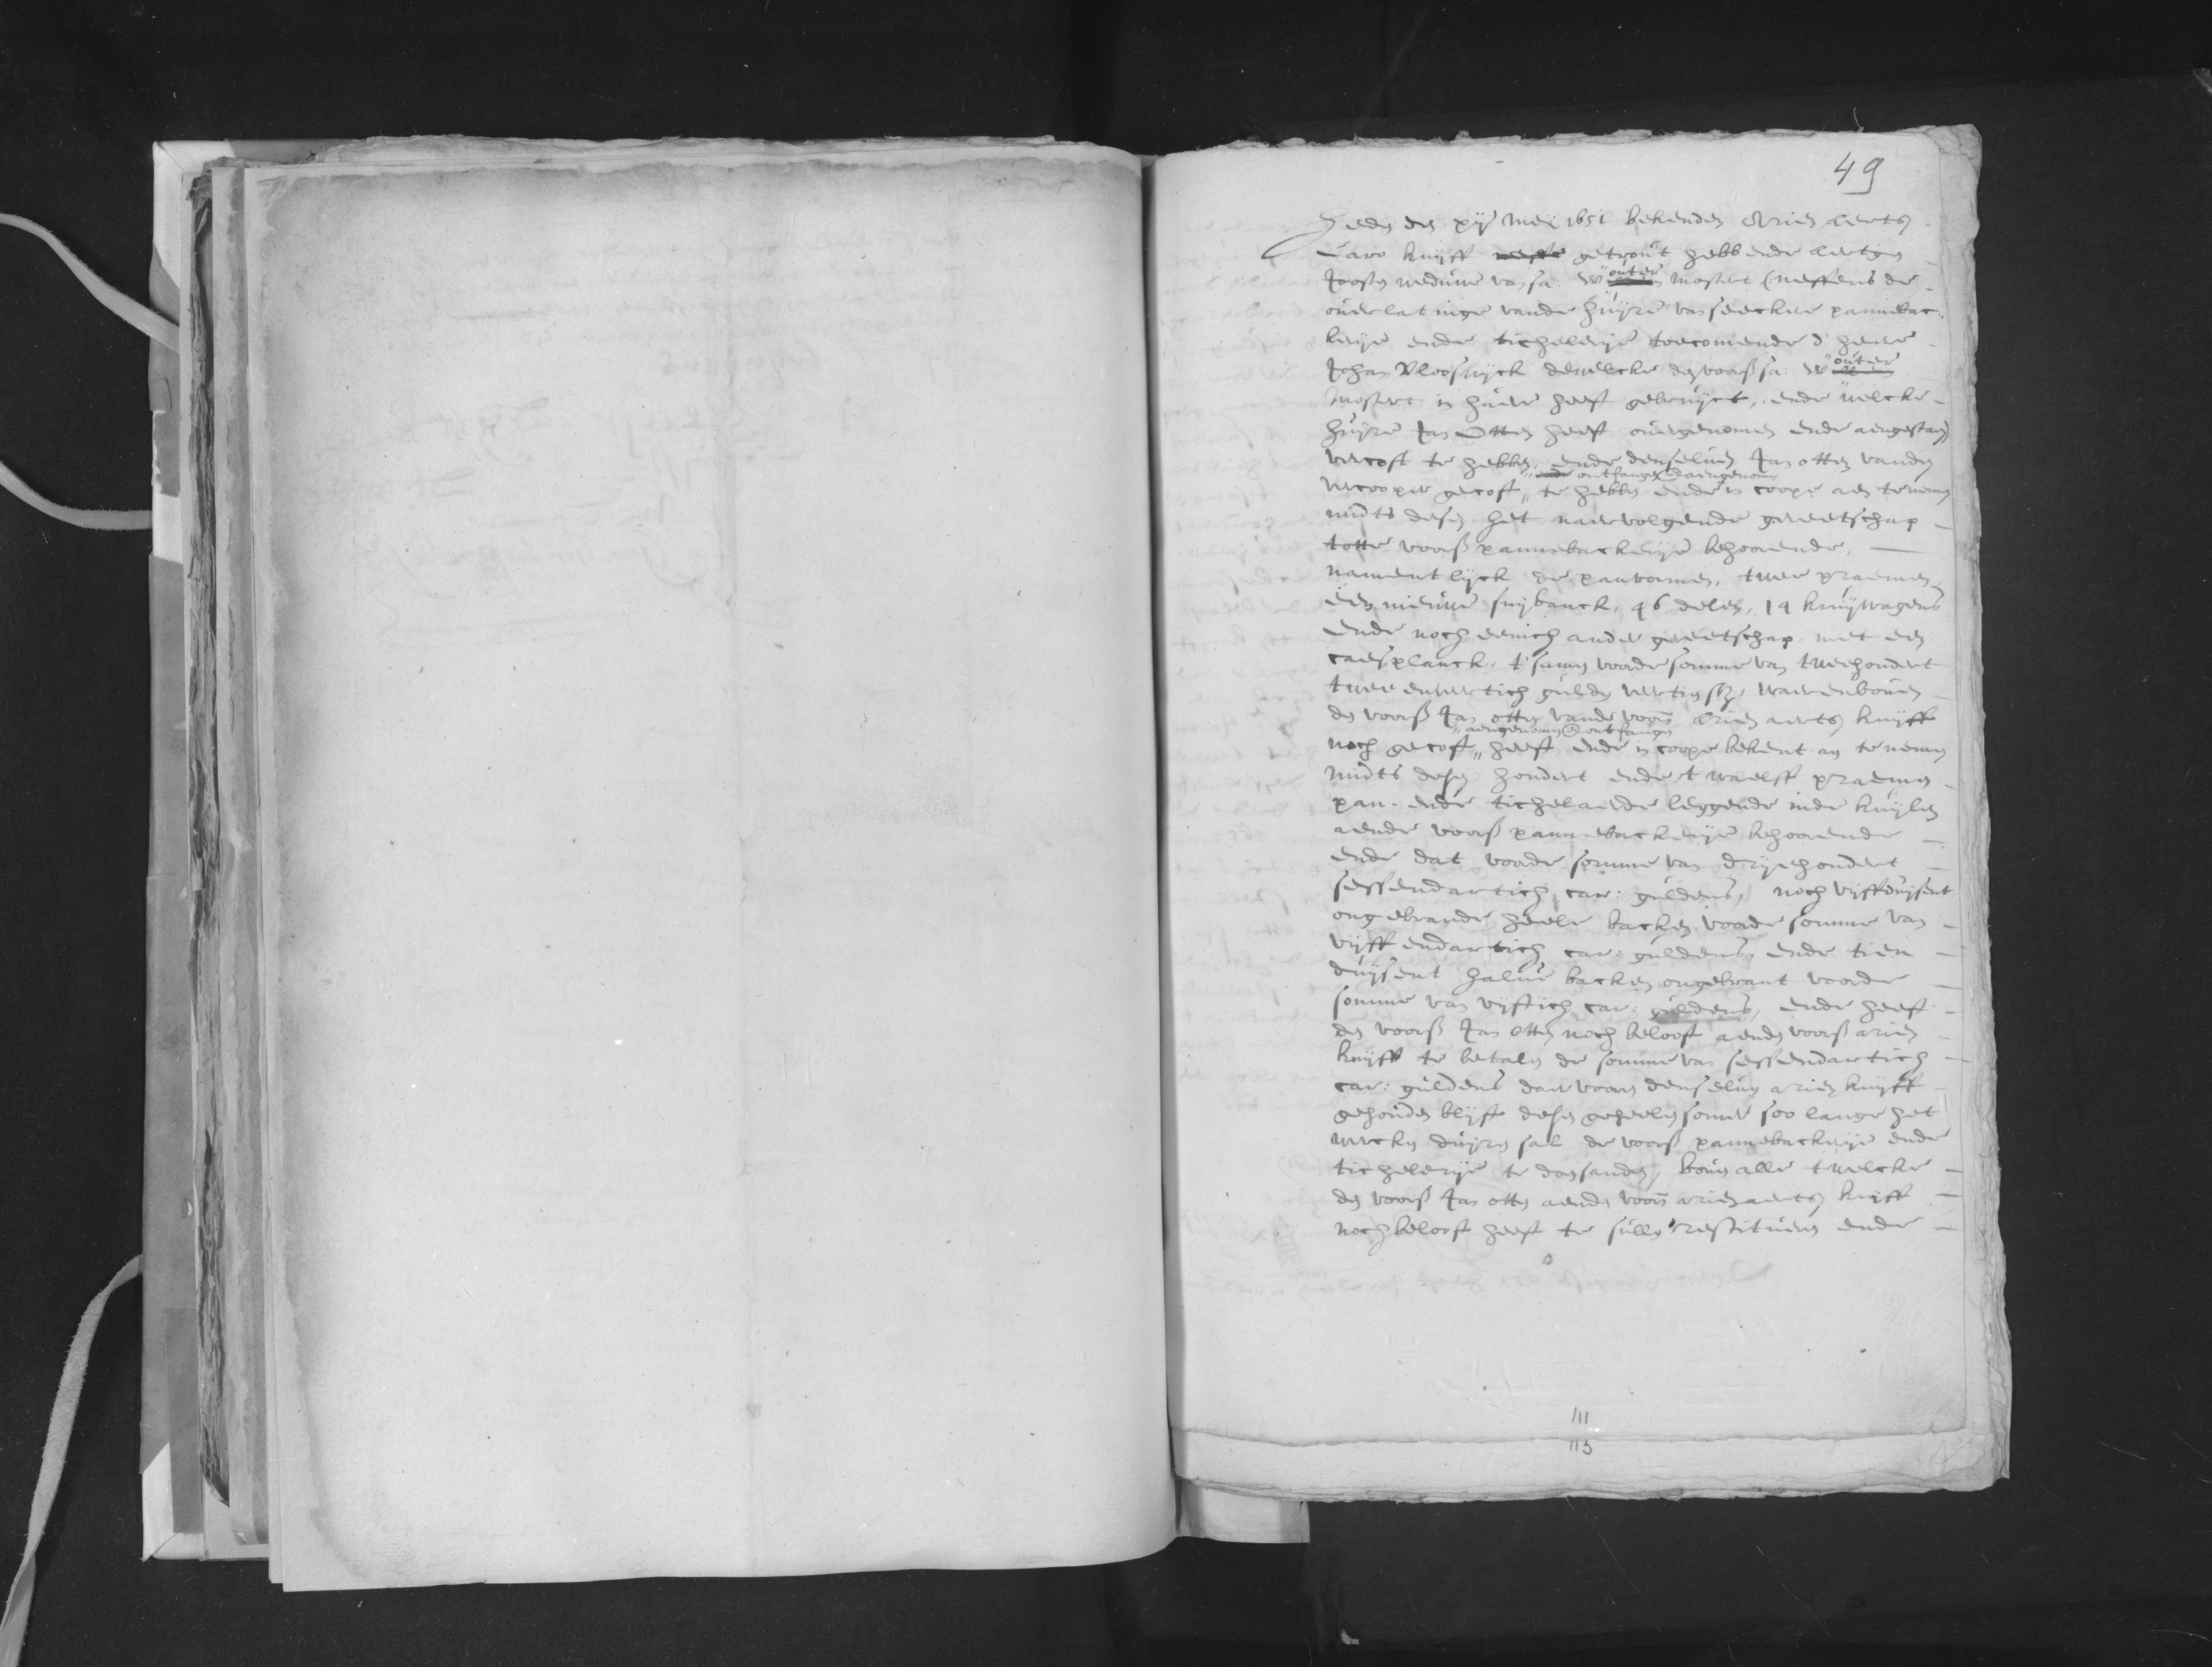 49
Heden den xij Meij 1651 bekenden Arien aertsz
Caro knijff getrout hebbende aertgen
Joosten weduwe van sa: Wouter Mostert (neffens de
ouerlatinge vande huijre van seeckere pannebac-
kerije ende tichelerije toecomende d' heere
Johan Vlooswijck dewelcke den voorss sa: Wouter
Mostert in huere heeft gebruijct, ende welcke
huijre Jan Otten heeft ouergenomen ende aengestaen)
vercoft te hebben ende denseluen Jan otten vanden
" ende ontfangen & aengenomen
vercooper gecoft " te hebben ende in coope aen te nemen
midts desen het naervolgende gereetschap
totte voorss pannebackerije behoorende,
namentlijck de panvormen, twee praemen,
een nieuwe snijbanck, 46 delen, 14 kruijwagens
ende noch eenich ander gereetschap met een
caesplanck, t'samen voor de somme van tweehondert
twee enveertich gulden veertien st, waerenbouen
den voorss Jan otten vande voorn arien aertsz knijff
" aengenomen & ontfangen
noch gecoft " heeft ende in coope bekent aen te nemen
midts desen hondert ende twaelff praemen
pan- ende tichelaerde leggende inde kuijlen
aende voorss pannebackerije behoorende
ende dat voorde somme van drijehondert
sessendartich car: guldens, noch vijffduijsent
ongebrande heele backen voorde somme van
vijffendartich car: guldens ende tien
duijsent halue backen ongebrant voorde
somme van vijftich car: guldens, ende heeft
den voorss Jan otten noch belooft aenden voorss arien
knijff te betalen de somme van sessendartich
car: guldens daervooren denseluen arien knijff
gehouden blijft desen geheelen somer soo lange het
wercken duijren sal de voorss pannebackerije ende
tichelerije te doen sanden, bouen alle twelcke
den voorss Jan otten aenden voorn arien aertsz knijff
noch belooft heeft te sullen restitueren ende
111
113